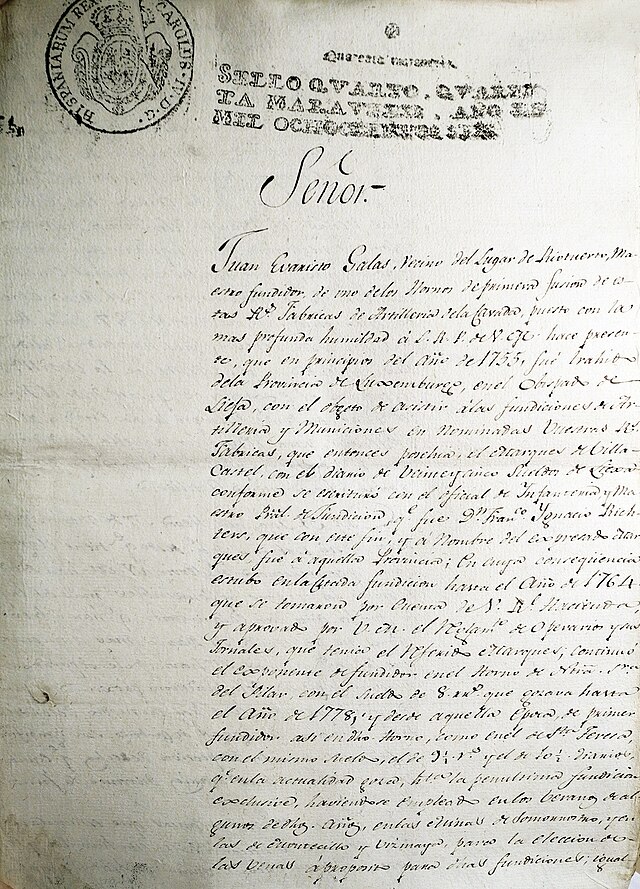 HISPANIARUM REX CAROLUS IV D. G.
Quarenta maravedis.
SELLO QVARTO, QVAREN
TA MARAVEDIS, AÑO DE
MIL OCHOCIENTOS
Señor.-
Juan Evaristo Galas, Vecino del Lugar de Riotuerto, Ma
estro fundidor, de uno delos Hornos de primera fusion de es
tas Rs. Fabricas de Artilleria dela Cavada, puesto con la
mas profunda humildad á L. R. P. de V. M. hace presen
te, que en principios del Año de 1755, fué trahido
dela Provincia de Luxemburg, en el Obispado de
Lieja, con el objeto de asistir álas fundiciones de Ar
tilleria y Municiones en Nominadas Vuestras Rs.
Fabricas, que entonces posehia, el Marques de Villa-
Castel, con el diario de Veinteycinco Sueldos de Lieja
conforme se escrituró con el oficial de Infanteria y Ma
estro Gral. de Fundicion, q.e fue Dn. Franco. Ygnacio Rich-
ters, que con este fin, y á Nombre del expresado Mar
ques, fué á aquella Provincia; En cuya conseqüencia
estubo en la Citada fundicion hasta el Año de 1764
que se tomaron por Cuenta de V. Rl. Hacienda
y aprovado por V. M. el Reglamto. de Operarios y sus
Jornales, que tenia el Referido Marques, continuó
el exponente de fundidor en el Horno de Ntra. Sra.
del Pilar, con el sueldo de 8 rs. que gozava hasta
el Año de 1778; y desde aquella Epoca, de primer
fundidor asi en dho. Horno, como en el de Sta. Teresa
con el mismo sueldo, el de 9½ rs. y el de 10½ diarios,
q.e en la actualidad goza, hta. la penultima fundicion
exclusive, haviendose empleado en los Veranos de al
gunos de dhos. Años, en las Minas de Somorrostro, y en
las de Montecillo y Vizmaya, para la eleccion de
las Venas á proposito para dhas fundiciones; igual